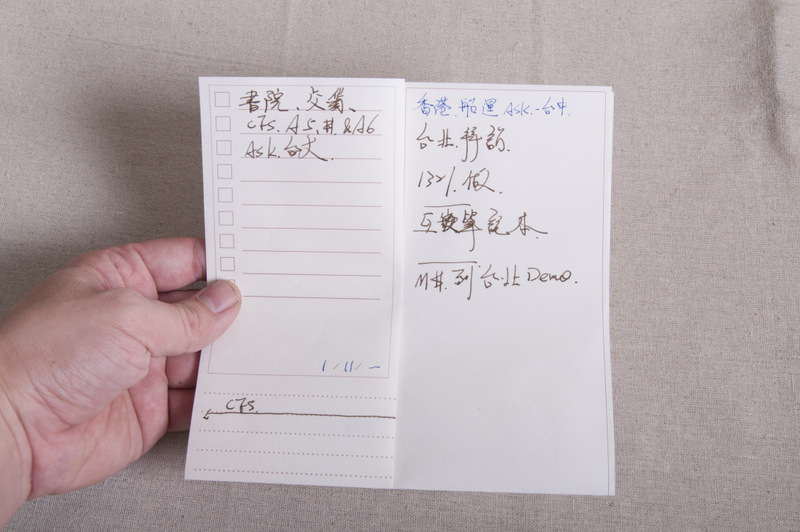 書院、交貨、
CFS. A5, 井 & A6
Ask. 台大.
1/11/一
CFS.
香港.船運 Ask.台中.
台北.
132%.做
互換筆記本.
M井.到台北Demo.